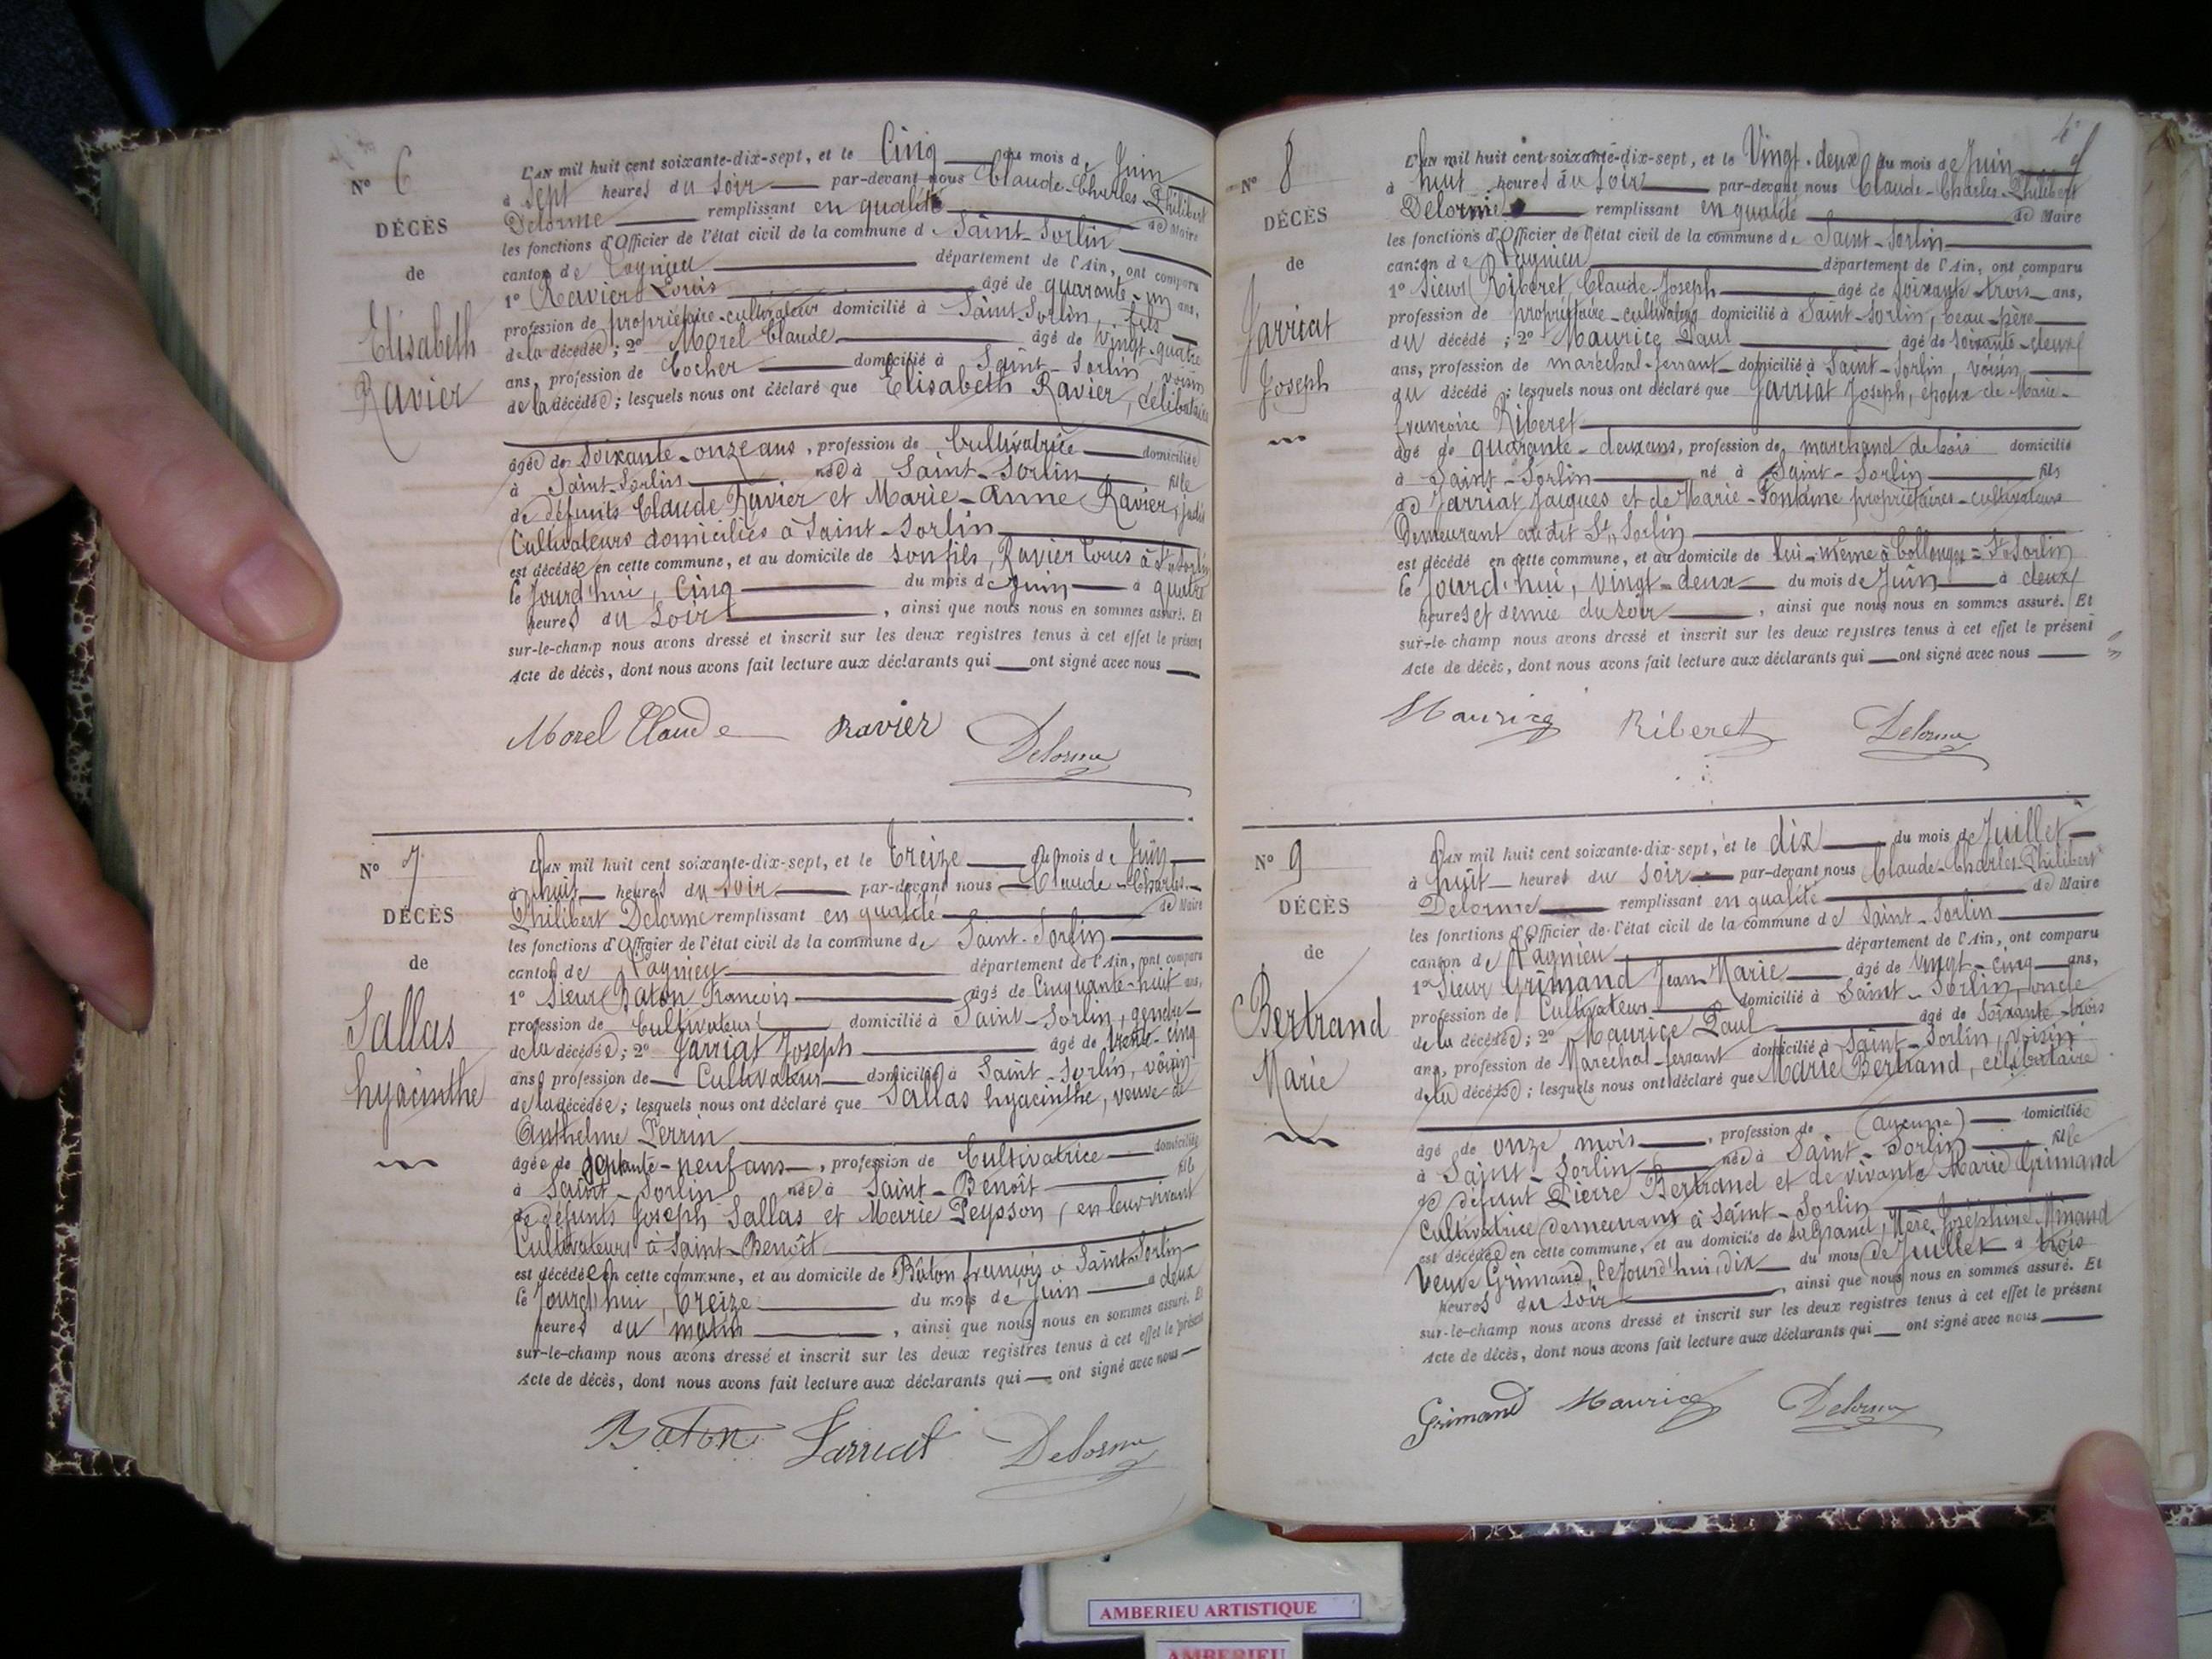 N° 6
DÉCÈS
de
Elisabeth
Ravier
L'AN mil huit cent soixante-dix-sept, et le Cinq du mois de Juin
à Sept heures du Soir par-devant nous Claude-Charles-Philibert
Delorme remplissant en qualité de Maire
les fonctions d'Officier de l'état civil de la commune de Saint-Sorlin
canton de Lagnieu département de l'Ain, ont comparu
1° Ravier Louis âgé de quarante-un ans,
profession de propriétaire-cultivateur domicilié à Saint-Sorlin, fils
de la décédée ; 2° Morel Claude âgé de vingt-quatre
ans, profession de Cocher domicilié à Saint-Sorlin voisin
de la décédée ; lesquels nous ont déclaré que Elisabeth Ravier, célibataire
âgée de Soixante-onze ans, profession de Cultivatrice domiciliée
à Saint-Sorlin née à Saint-Sorlin fille
de défunts Claude Ravier et Marie-Anne Ravier, jadis
Cultivateurs domiciliés à Saint-Sorlin
est décédée en cette commune, et au domicile de son fils, Ravier Louis à St Sorlin
le Jourd'hui, Cinq du mois de Juin à quatre
heures du Soir, ainsi que nous nous en sommes assuré. Et
sur-le-champ nous avons dressé et inscrit sur les deux registres tenus à cet effet le présent
Acte de décès, dont nous avons fait lecture aux déclarants qui ont signé avec nous
Morel Claude Ravier Delorme
N° 7
DÉCÈS
de
Sallas
hyacinthe
L'AN mil huit cent soixante-dix-sept, et le Treize du mois de Juin
à huit heures du Soir par-devant nous Claude-Charles-
Philibert Delorme remplissant en qualité de Maire
les fonctions d'Officier de l'état civil de la commune de Saint-Sorlin
canton de Lagnieu département de l'Ain, ont comparu
1° Sieur Baton François âgé de Cinquante-huit ans,
profession de Cultivateur domicilié à Saint-Sorlin, gendre
de la décédée ; 2° Jarriat Joseph âgé de trente-cinq
ans, profession de Cultivateur domicilié à Saint-Sorlin, voisin
de la décédée ; lesquels nous ont déclaré que Sallas hyacinthe, veuve de
Anthelme Perrin
âgée de Septante-neuf ans, profession de Cultivatrice domiciliée
à Saint-Sorlin née à Saint-Benoît fille
de défunts Joseph Sallas et Marie Peysson, en leur vivant
Cultivateurs à Saint-Benoît
est décédée en cette commune, et au domicile de Bâton françois à Saint-Sorlin
le Jourd'hui, Treize du mois de Juin à deux
heures du matin, ainsi que nous nous en sommes assuré. Et
sur-le-champ nous avons dressé et inscrit sur les deux registres tenus à cet effet le présent
Acte de décès, dont nous avons fait lecture aux déclarants qui ont signé avec nous
Baton Jarriat Delorme
4
N° 8
DÉCÈS
de
Jarriat
Joseph
L'AN mil huit cent soixante-dix-sept, et le Vingt-deux du mois de Juin
à huit heures du Soir par-devant nous Claude-Charles-Philibert
Delorme remplissant en qualité de Maire
les fonctions d'Officier de l'état civil de la commune de Saint-Sorlin
canton de Lagnieu département de l'Ain, ont comparu
1° Sieur Riberet Claude-Joseph âgé de Soixante-trois ans,
profession de propriétaire-cultivateur domicilié à Saint-Sorlin, beau-père
du décédé ; 2° Maurice Paul âgé de Soixante-deux
ans, profession de maréchal-ferrant domicilié à Saint-Sorlin, voisin
du décédé ; lesquels nous ont déclaré que Jarriat Joseph, époux de Marie-
françoise Riberet
âgé de quarante-deux ans, profession de marchand de bois domicilié
à Saint-Sorlin né à Saint-Sorlin fils
de Jarriat Jacques et de Marie-Fontaine propriétaires-cultivateurs
Demeurant audit St Sorlin
est décédé en cette commune, et au domicile de lui-même à Collonges=St Sorlin
le Jourd'hui, vingt-deux du mois de Juin à deux
heures et demie du Soir, ainsi que nous nous en sommes assuré. Et
sur-le-champ nous avons dressé et inscrit sur les deux registres tenus à cet effet le présent
Acte de décès, dont nous avons fait lecture aux déclarants qui ont signé avec nous
Maurice Riberet Delorme
N° 9
DÉCÈS
de
Bertrand
Marie
L'AN mil huit cent soixante-dix-sept, et le dix du mois de Juillet
à huit heures du Soir par-devant nous Claude-Charles-Philibert
Delorme remplissant en qualité de Maire
les fonctions d'Officier de l'état civil de la commune de Saint-Sorlin
canton de Lagnieu département de l'Ain, ont comparu
1° Sieur Grimand Jean-Marie âgé de Vingt-cinq ans,
profession de Cultivateur domicilié à Saint-Sorlin, oncle
de la décédée ; 2° Maurice Paul âgé de Soixante-trois
ans, profession de Maréchal-ferrant domicilié à Saint-Sorlin, voisin
de la décédée ; lesquels nous ont déclaré que Marie Bertrand, célibataire
âgé de onze mois, profession de (aucune) domiciliée
à Saint-Sorlin née à Saint-Sorlin fille
de défunt Pierre Bertrand et de vivante Marie Grimand
Cultivatrice demeurant à Saint-Sorlin
est décédée en cette commune, et au domicile de sa Grand'Mère Joséphine Minand
Veuve Grimand, le Jourd'hui, dix du mois de Juillet à trois
heures du Soir, ainsi que nous nous en sommes assuré. Et
sur-le-champ nous avons dressé et inscrit sur les deux registres tenus à cet effet le présent
Acte de décès, dont nous avons fait lecture aux déclarants qui ont signé avec nous
Grimand Maurice Delorme
AMBERIEU ARTISTIQUE
AMBERIEU